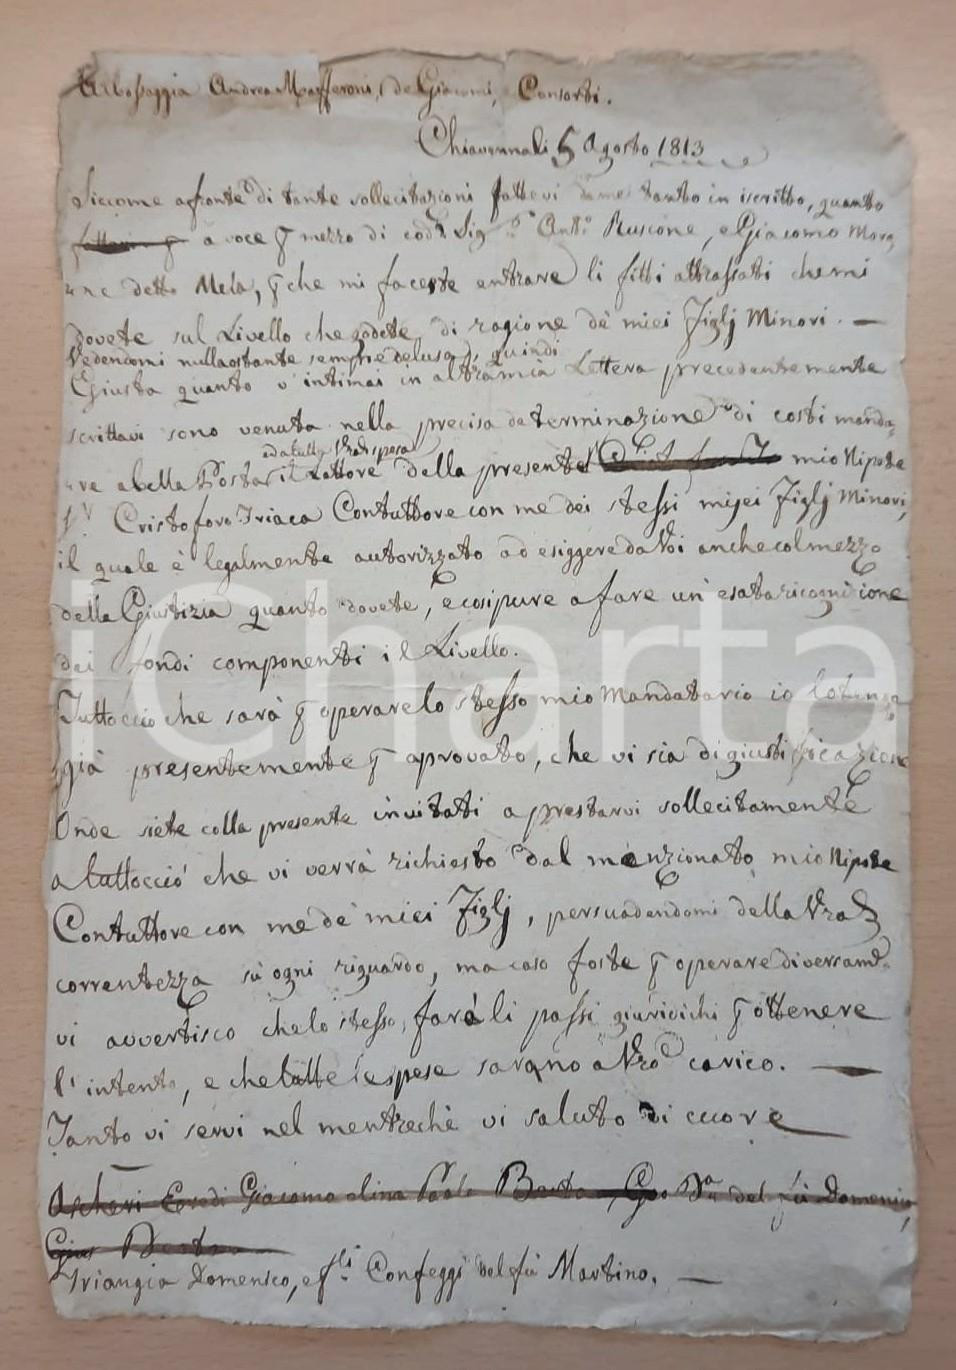 Albosaggia Andrea Mafferoni, de Giacomi, e Consorti.
Chiavenna li 5 Agosto 1813
Siccome a fronte di tante sollecitazioni fattevi da me tanto in iscritto, quanto
a voce p mezzo di Sig.r Ant.o Ruscone, e Giacomo
detto Mela, p che mi faceste entrare li fitti attrassatti che mi
dovete sul Livello che godete di ragione de' miei Figlj Minori. —
Vedendomi nullaostante sempre delusa, quindi
Giusta quanto v'intimai in altra mia Lettera precedentemente
scrittavi sono venuta nella precisa determinazione di costi manda-
re a bella Posta il Lattore della presente mio Nipote
ed a tutte Vre spese
S.r Cristoforo Triaca Contuttore con me dei stessi miei Figlj Minori,
il quale è legalmente autorizzato ad esiggere da Voi anche col mezzo
della Giustizia quanto dovete, e cosi pure a fare un'esata ricognizione
dei fondi componenti il Livello.
Tuttocciò che sarà p operare lo stesso mio Mandatario io lo tengo
già presentemente p aprovato, che vi sia di giustificazione
Onde siete colla presente invitati a prestarvi sollecitamente
a tuttocciò che vi verrà richiesto dal menzionato mio Nipote
Contuttore con me de' miei Figlj, persuadendomi della Vra
correntezza sù ogni riguardo, ma caso foste p operare diversame.
vi avvertisco che lo stesso, farà li passi giuridichi p ottenere
l'intento, e che tutte le spese sarano a Vro carico. —
Tanto vi servi nel mentreché vi saluto di cuore
Eredi Giacomolina Paolo Berta del fù Domenico,
Gius Berta
Triangia Domenico, e f.lli Confeggi del fù Martino. —
iCharta